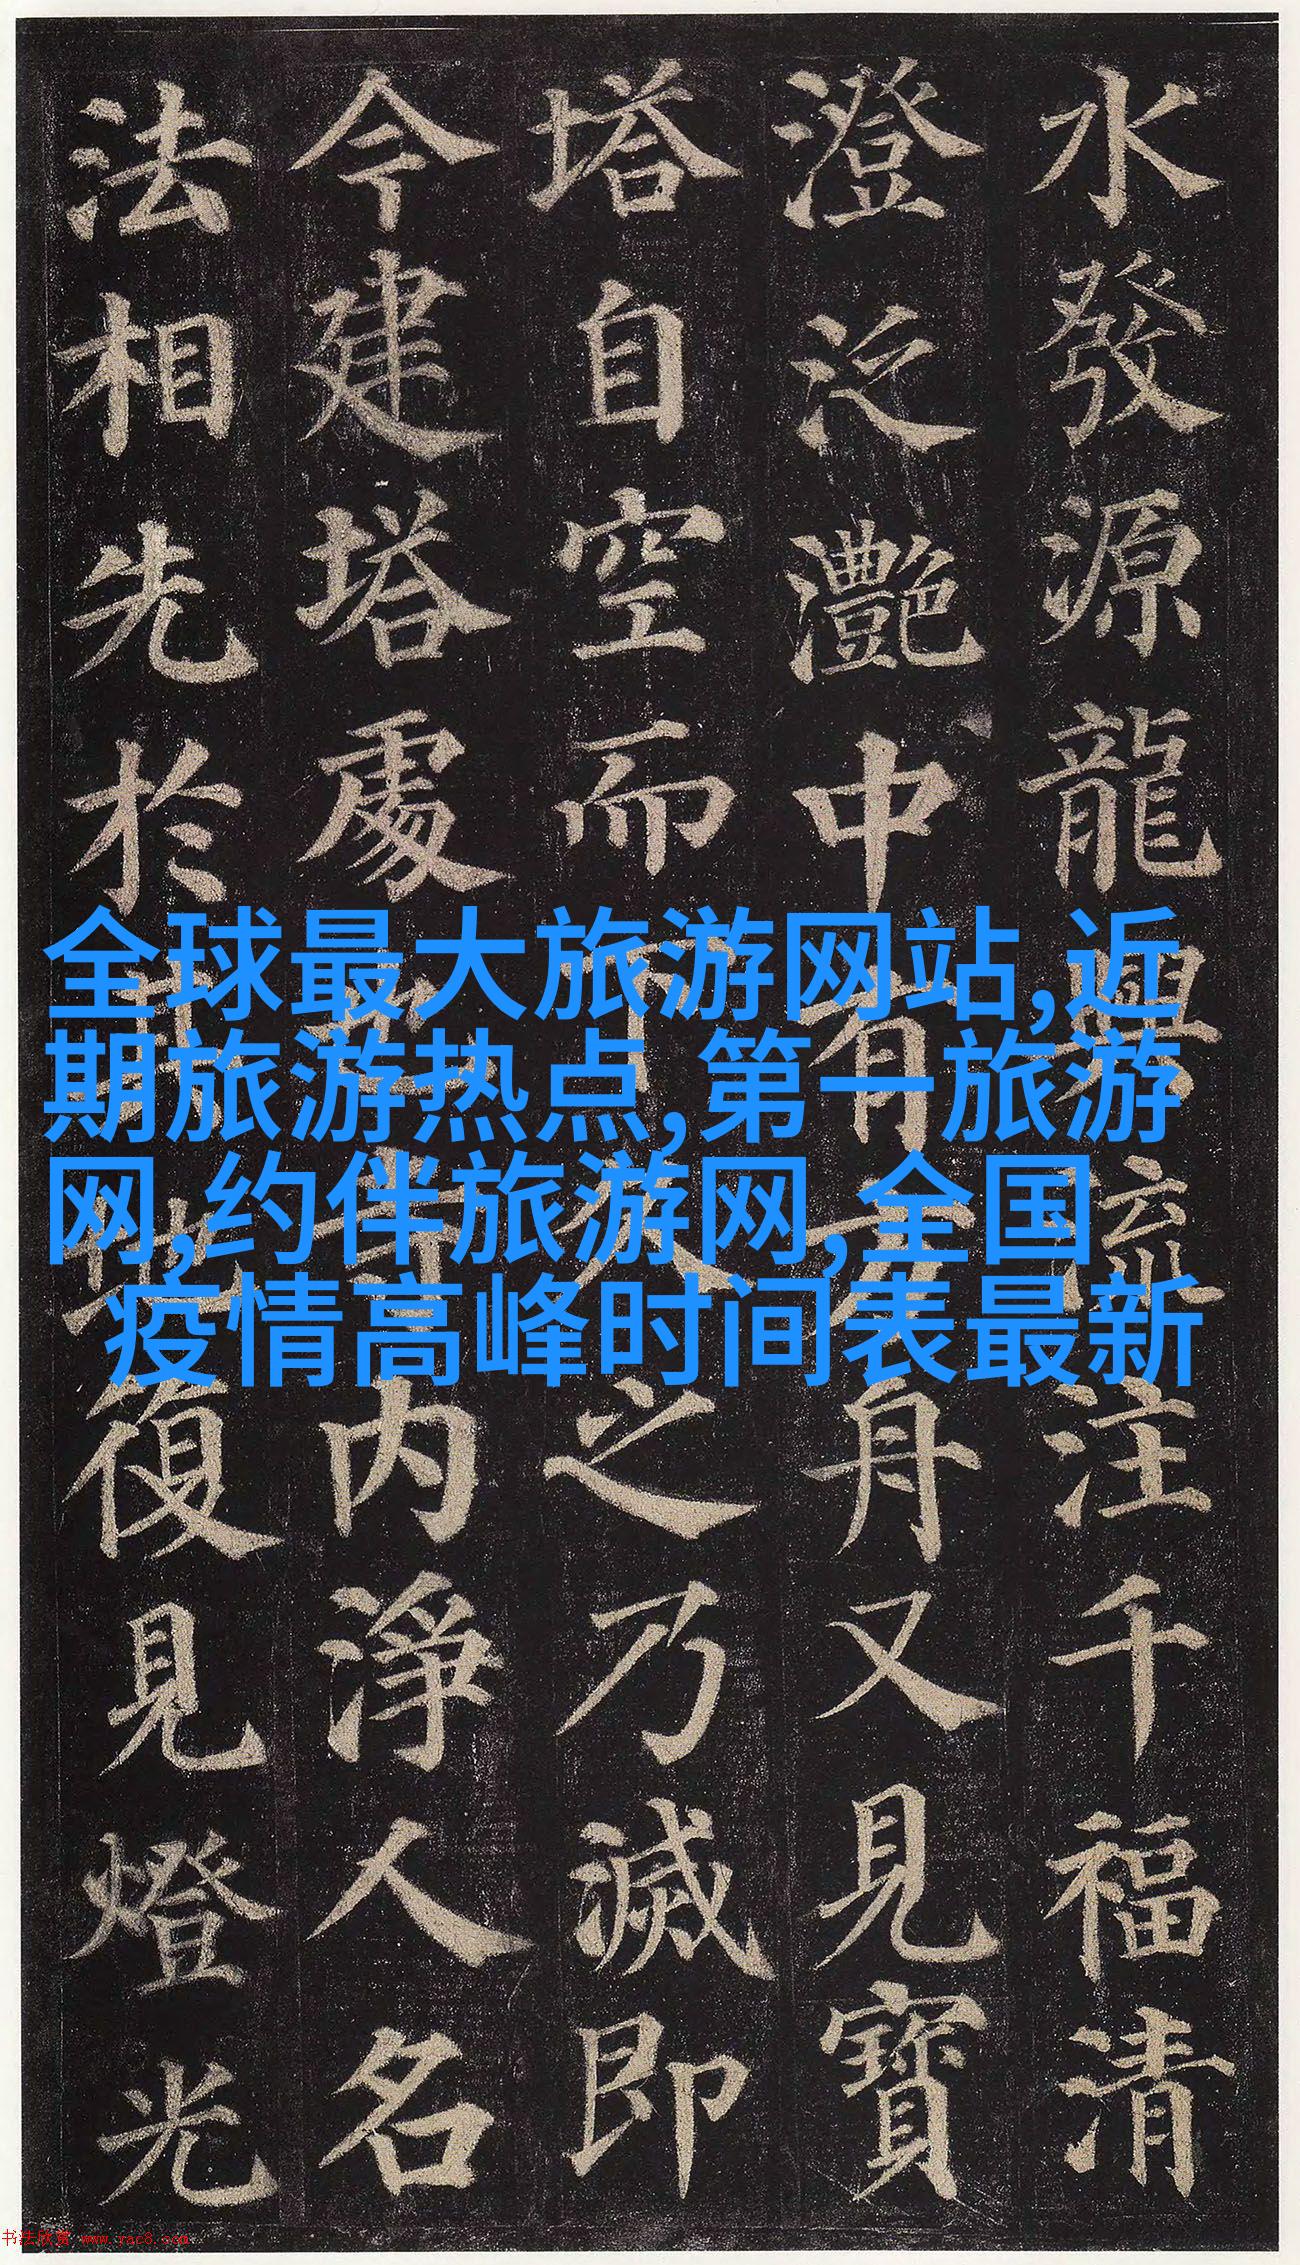 水發源龍興流注千福清
澄泛灧中有方舟又見寶
塔自空而下久之乃滅即
今建塔處也寺内淨人名
法相先於其地復見燈光
全球最大旅游网站,近
期旅游热点,第一旅游
网,约伴旅游网,全国
疫情高峰时间表最新
书法欣赏 www.yac8.com